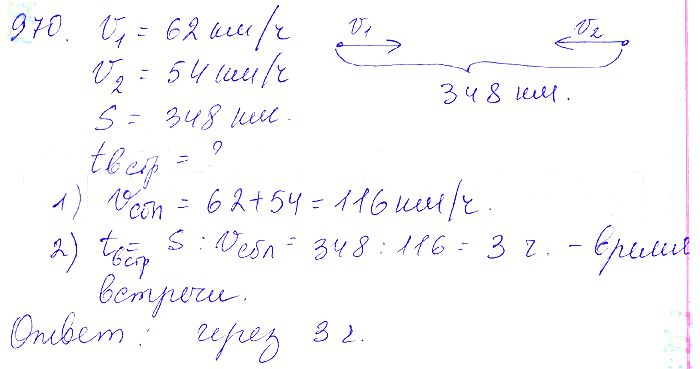 970. V₁ = 62 км/ч
V₁ V₂
V₂ = 54 км/ч
348 км.
S = 348 км.
tвстр = ?
1) Vсбл = 62+54 = 116 км/ч.
2) tвстр = S : Vсбл = 348 : 116 = 3 ч. - время
встречи.
Ответ: через 3 ч.